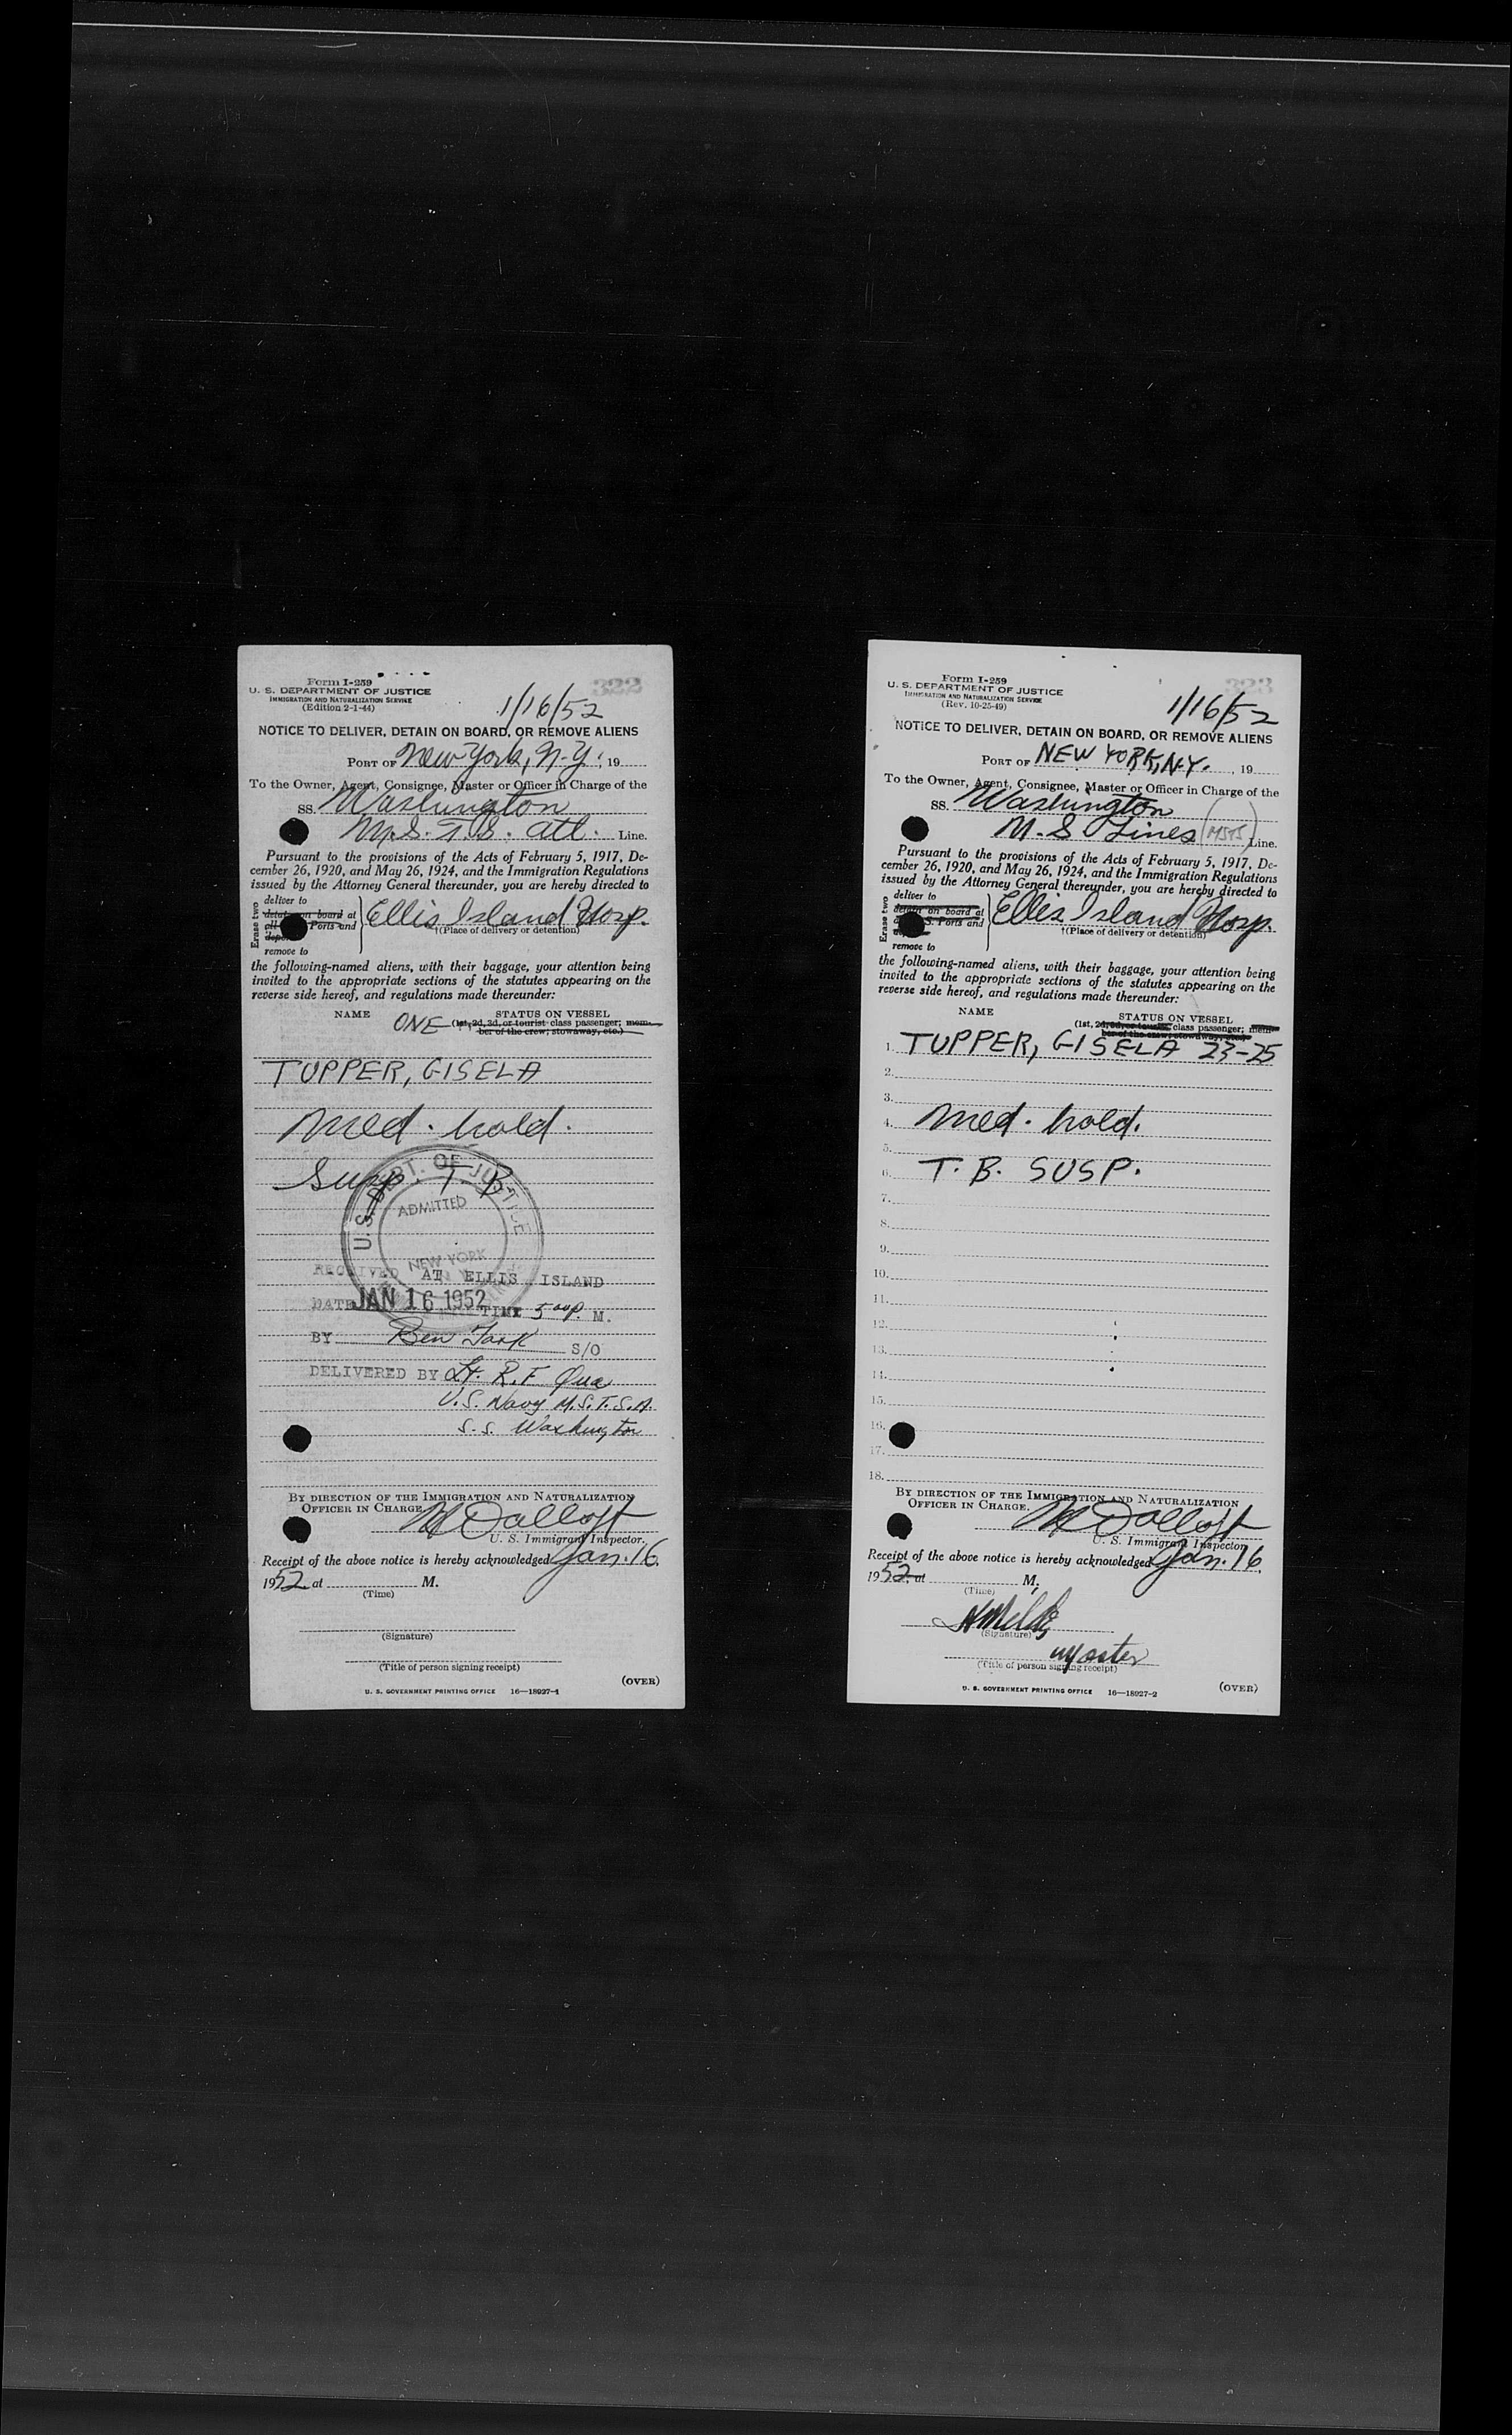 Form I-259
U. S. DEPARTMENT OF JUSTICE
IMMIGRATION AND NATURALIZATION SERVICE
(Edition 2-1-44)
322
1/16/52
NOTICE TO DELIVER, DETAIN ON BOARD, OR REMOVE ALIENS
PORT OF New York, N.Y. 19
To the Owner, Agent, Consignee, Master or Officer in Charge of the
SS. Washington
M.S.T.S. Atl. Line.
Pursuant to the provisions of the Acts of February 5, 1917, De-
cember 26, 1920, and May 26, 1924, and the Immigration Regulations
issued by the Attorney General thereunder, you are hereby directed to
Erase two
deliver to
detain on board at
all Ports and
remove to
Ellis Island Hosp.
†(Place of delivery or detention)
the following-named aliens, with their baggage, your attention being
invited to the appropriate sections of the statutes appearing on the
reverse side hereof, and regulations made thereunder:
NAME STATUS ON VESSEL
ONE (1st, 2d, 3d, or tourist class passenger; mem-
ber of the crew; stowaway, etc.)
TUPPER, GISELA
Med. hold.
Susp T.B.
U.S. DEPT. OF JUSTICE
ADMITTED
NEW YORK
RECEIVED AT ELLIS ISLAND
DATE JAN 16 1952 TIME 5 00 P. M.
BY Ben S/O
DELIVERED BY Lt. R.F. Qua
U.S. Navy M.S.T.S.A.
S.S. Washington
BY DIRECTION OF THE IMMIGRATION AND NATURALIZATION
OFFICER IN CHARGE.
U. S. Immigrant Inspector.
Receipt of the above notice is hereby acknowledged Jan. 16,
1952 at M.
(Time)
(Signature)
(Title of person signing receipt)
(OVER)
U. S. GOVERNMENT PRINTING OFFICE 16—18927-1
Form I-259
U. S. DEPARTMENT OF JUSTICE
IMMIGRATION AND NATURALIZATION SERVICE
(Rev. 10-25-49)
323
1/16/52
NOTICE TO DELIVER, DETAIN ON BOARD, OR REMOVE ALIENS
PORT OF NEW YORK, N.Y. , 19
To the Owner, Agent, Consignee, Master or Officer in Charge of the
SS. Washington
M.S Lines (MSTS) Line.
Pursuant to the provisions of the Acts of February 5, 1917, De-
cember 26, 1920, and May 26, 1924, and the Immigration Regulations
issued by the Attorney General thereunder, you are hereby directed to
Erase two
deliver to
detain on board at
S. Ports and
remove to
Ellis Island Hosp.
†(Place of delivery or detention)
the following-named aliens, with their baggage, your attention being
invited to the appropriate sections of the statutes appearing on the
reverse side hereof, and regulations made thereunder:
NAME STATUS ON VESSEL
(1st, 2d, 3d, or tourist class passenger; mem-
ber of the crew; stowaway, etc.)
1. TUPPER, GISELA 23-25
2.
3.
4. Med. hold.
5.
6. T.B. SUSP.
7.
8.
9.
10.
11.
12.
13.
14.
15.
16.
17.
18.
BY DIRECTION OF THE IMMIGRATION AND NATURALIZATION
OFFICER IN CHARGE.
U. S. Immigrant Inspector
Receipt of the above notice is hereby acknowledged Jan. 16,
1952, at M.
(Time)
(Signature)
Master
(Title of person signing receipt)
U. S. GOVERNMENT PRINTING OFFICE 16—18927-2
(OVER)